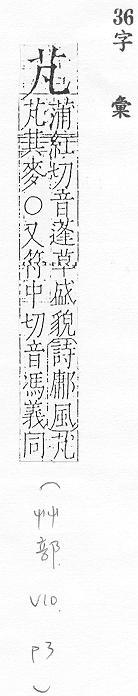 36
字彙
芃
蒲紅切音蓬草盛貌詩鄘風芃
芃其麥○又符中切音馮義同
(艸部. V10. P3)